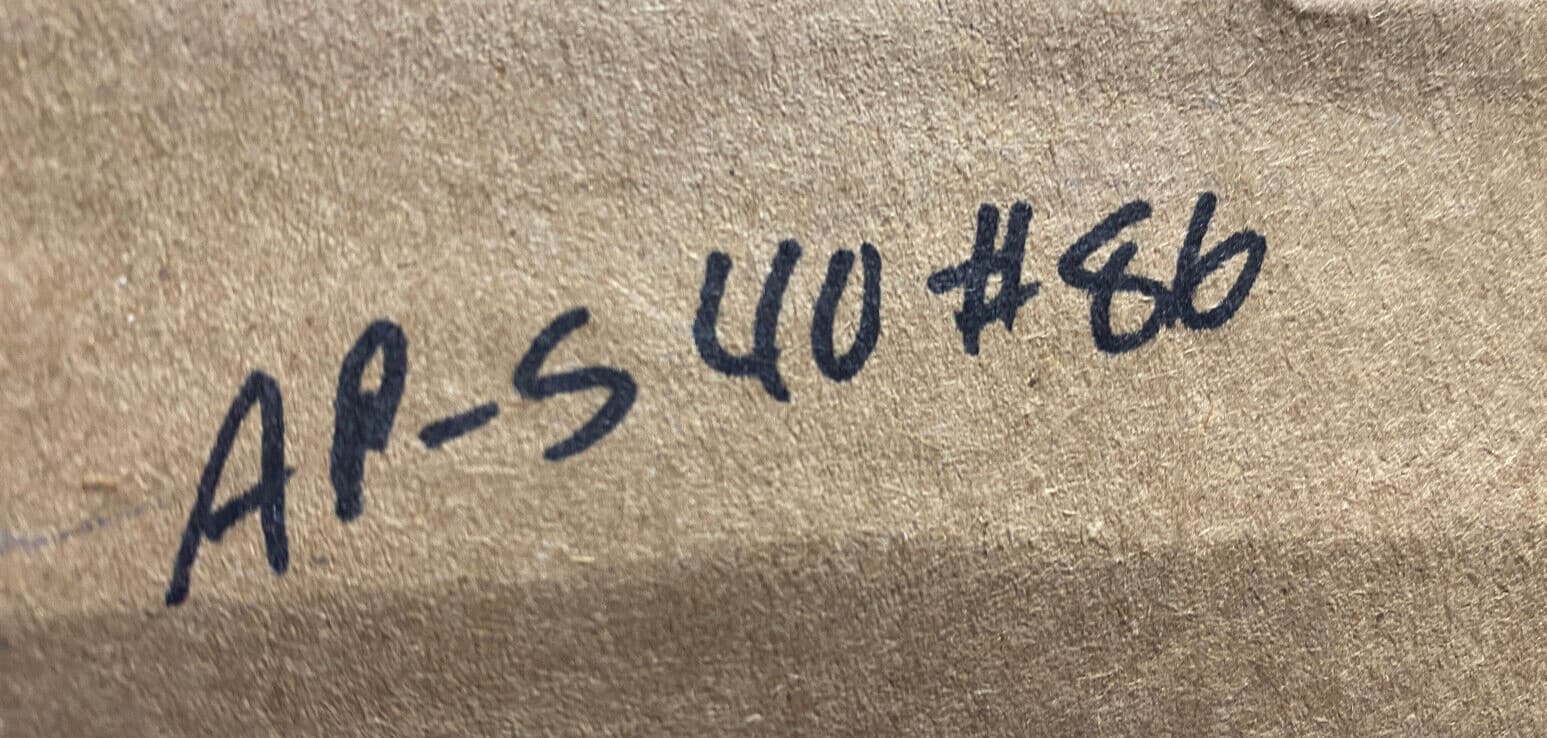 AP-S 40 #86